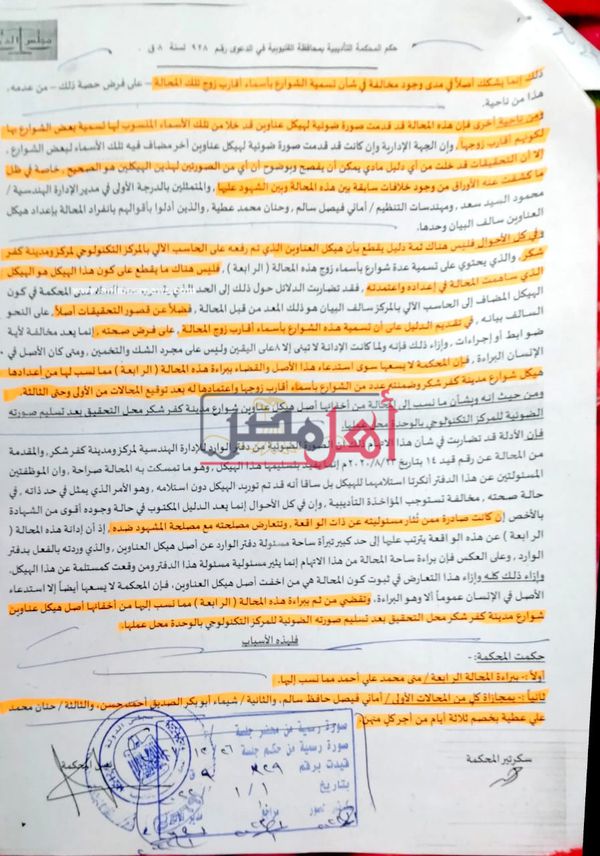 مجلس الد
حكم المحكمة التأديبية بمحافظة القليوبية في الدعوى رقم ٩٢٨ لسنة ٨ ق .
ذلك إنما يشكك أصلاً في مدى وجود مخالفة في شأن تسمية الشوارع بأسماء أقارب زوج تلك المحالة – على فرض حصة ذلك – من عدمه،
هذا من ناحية.
ومن ناحية أخرى فإن هذه المحالة قد قدمت صورة ضوئية لهيكل عناوين قد خلا من تلك الأسماء المنسوب لها تسمية بعض الشوارع بها
لكونهم أقارب زوجها، وإن الجهة الإدارية وإن كانت قد قدمت صورة ضوئية لهيكل عناوين آخر مضاف فيه تلك الأسماء لبعض الشوارع ،
إلا أن التحقيقات قد خلت من أي دليل مادي يمكن أن يفصح وبوضوح أن أي من الصورتين لهذين الهيكلين هو الصحيح , خاصة في ظل
ما كشفت عنه الأوراق من وجود خلافات سابقة بين هذه المحالة وبين الشهود عليها، والمتمثلين بالدرجة الأولى في مدير الإدارة الهندسية /
محمود السيد سعد، ومهندسات التنظيم / أماني فيصل سالم، وحنان محمد عطية , والذين أدلوا بأقوالهم بانفراد المحالة بإعداد هيكل
العناوين سالف البيان وحدها.
وفي كل الأحوال فليس هناك ثمة دليل يقطع بأن هيكل العناوين الذي تم رفعه على الحاسب الآلي بالمركز التكنولوجي لمركز ومدينة كفر
شكر، والذي يحتوي على تسمية عدة شوارع بأسماء زوج هذه المحالة ( الرابعة ) , فليس هناك ما يقطع على كون هذا الهيكل هو الهيكل
الذي ساهمت المحالة في إعداده واعتمدته , فقد تضاربت الدلائل حول ذلك إلى الحد الذي المحكمة في كون
الهيكل المضاف إلى الحاسب الآلي بالمركز سالف البيان هو ذلك المعد من قبل المحالة , فضلاً عن قصور التحقيقات أصلاً , على النحو
السالف بيانه , في تقديم الدليل على أن تسمية هذه الشوارع بأسماء أقارب زوج المحالة , على فرض صحته , إنما يعد مخالفة لأية
ضوابط أو إجراءات , وإزاء ذلك فإنه ولما كانت الإدانة لا تبنى إلا على اليقين وليس على مجرد الشك والتخمين , ومتى كان الأصل في
الإنسان البراءة , فإن المحكمة لا يسعها سوى استدعاء هذا الأصل والقضاء ببراءة هذه المحالة ( الرابعة ) مما نسب لها من إعدادها
هيكل شوارع مدينة كفر شكر وضمنته عدد من الشوارع بأسماء أقارب زوجها واعتمادها له بعد توقيع المحالات من الأولى وحتى الثالثة.
ومن حيث إنه وبشأن ما نسب إلى المحالة من أخفائها أصل هيكل عناوين شوارع مدينة كفر شكر محل التحقيق بعد تسليم صورته
الضوئية للمركز التكنولوجي بالوحدة محل عملها.
أهل مصر
فإن الأدلة قد تضاربت في شأن هذا الاتهام الصورة الضوئية من دفتر الوارد للإدارة الهندسية لمركز مدينة كفر شكر، والمقدمة
من المحالة عن رقم قيد ١٤ بتاريخ ٢٠٢٠/٨/٢٣م إنما يفيد بتسليمها هذا الهيكل , وهو ما تمسكت به المحالة صراحة , وإن الموظفتين
المسئولتين عن هذا الدفتر أنكرتا استلامهما للهيكل بل ساقا أنه قد تم توريد الهيكل دون استلامه , وهو الأمر الذي يمثل في حد ذاته , في
حالة صحته , مخالفة تستوجب المؤاخذة التأديبية , وإن في كل الأحوال إنما يعد الدليل المكتوب في حالة وجوده أقوى من الشهادة
بالأخص إن كانت صادرة ممن تُثار مسئوليته عن ذات الواقعة , وتتعارض مصلحته مع مصلحة المشهود ضده , إذ أن إدانة هذه المحالة (
الرابعة ) عن هذه الواقعة يترتب عليها إلى حد كبير تبرأة ساحة مسئولة دفتر الوارد عن أصل هيكل العناوين، والذي وردته بالفعل بدفتر
الوارد , وعلى العكس فإن براءة ساحة المحالة من هذا الاتهام إنما يثير مسئولية مسئولة هذا الدفتر ومن وقعت كمستلمة عن هذا الهيكل،
وإزاء ذلك كله وإزاء هذا التعارض في ثبوت كون المحالة هي من أخفت أصل هيكل العناوين، فإن المحكمة لا يسعها أيضاً إلا استدعاء
الأصل في الإنسان عموماً ألا وهو البراءة، وتقضي من ثم ببراءة هذه المحالة ( الرابعة ) مما نسب إليها من أخفائها أصل هيكل عناوين
شوارع مدينة كفر شكر محل التحقيق بعد تسليم صورته الضوئية للمركز التكنولوجي بالوحدة محل عملها.
فلهذه الأسباب
حكمت المحكمة:-
أولاً :- ببراءة المحالة الرابعة / منى محمد علي أحمد مما نسب إليها.
ثانياً :- بمجازاة كل من المحالات الأولى / أماني فيصل حافظ سالم، والثانية / شيماء أبو بكر الصديق أحمد حسن، والثالثة / حنان محمد
علي عطية بخصم ثلاثة أيام من أجر كل منهن.
سكرتير المحكمة
المحكمة
صورة رسمية من محضر جلسة
صورة رسمية من حكم جلسة
قيدت برقم
بتاريخ